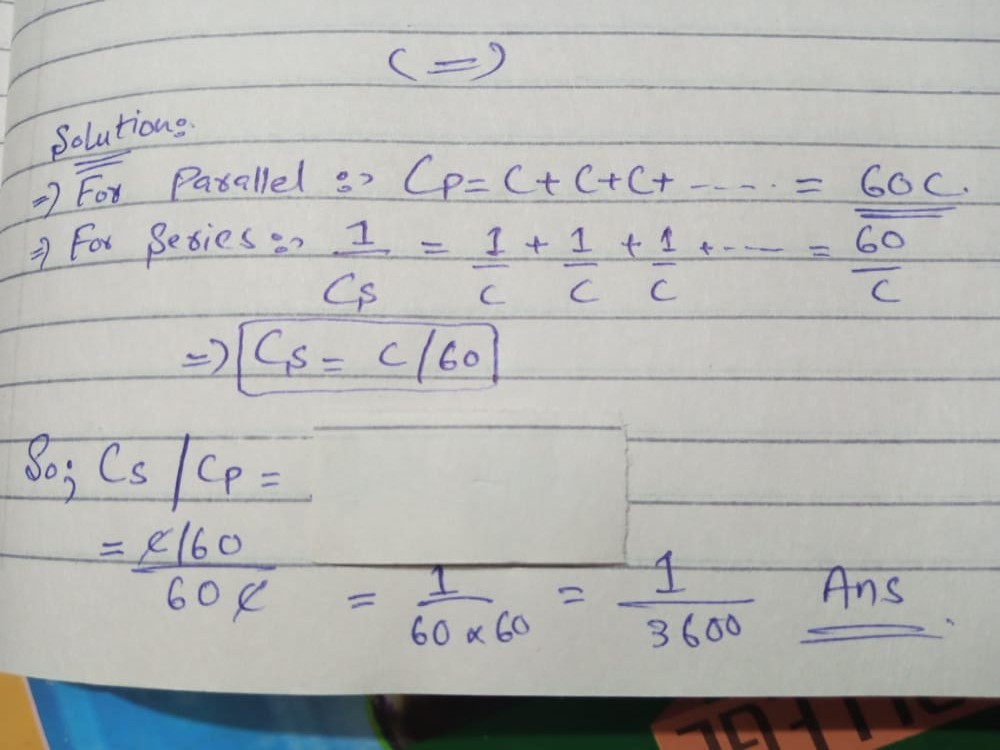 (=)
Solution:
=) For Parallel :> Cp = C + C + C + ----- = 60C.
=) For Series :> 1/Cs = 1/C + 1/C + 1/C + --- = 60/C
=) Cs = C/60
So; Cs / Cp =
= C/60 / 60C = 1 / 60 x 60 = 1 / 3600 Ans.